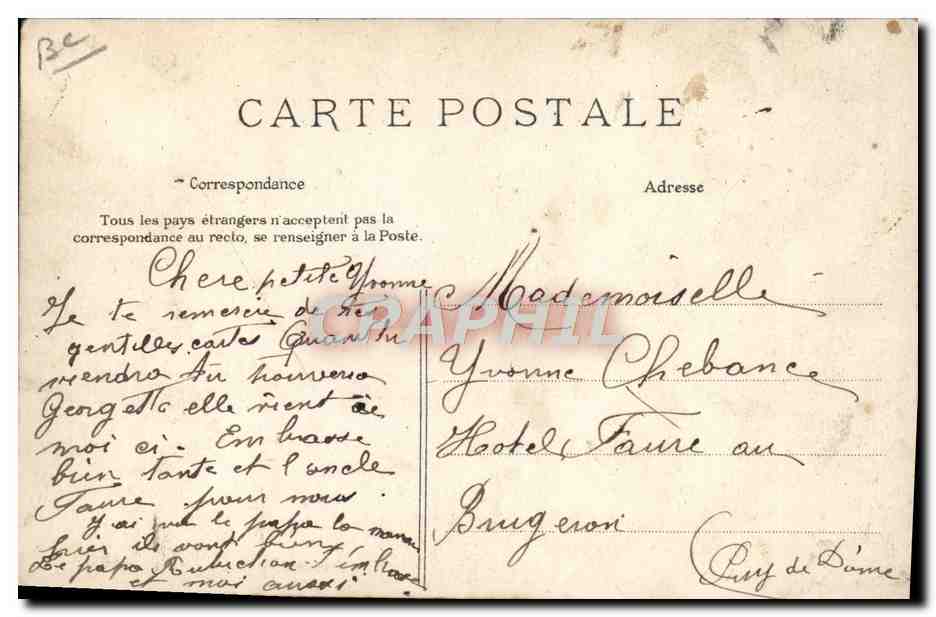 BC
CARTE POSTALE
Correspondance
Tous les pays étrangers n'acceptent pas la
correspondance au recto, se renseigner à la Poste.
Chere petite Yvonne
Je te remercie de tes
gentilles cartes Quand tu
viendra tu trouvera
Georgetta elle vient de
moi ci. Embrasse
bien tante et l'oncle
Faure pour nous.
J'ai vu le papa la maman
hier ils vont bien
Le papa t'embrasse
et moi aussi
Adresse
Mademoiselle
Yvonne Chebance
Hotel Faure au
Brugeron
(Puy de Dôme
CRAPHIL